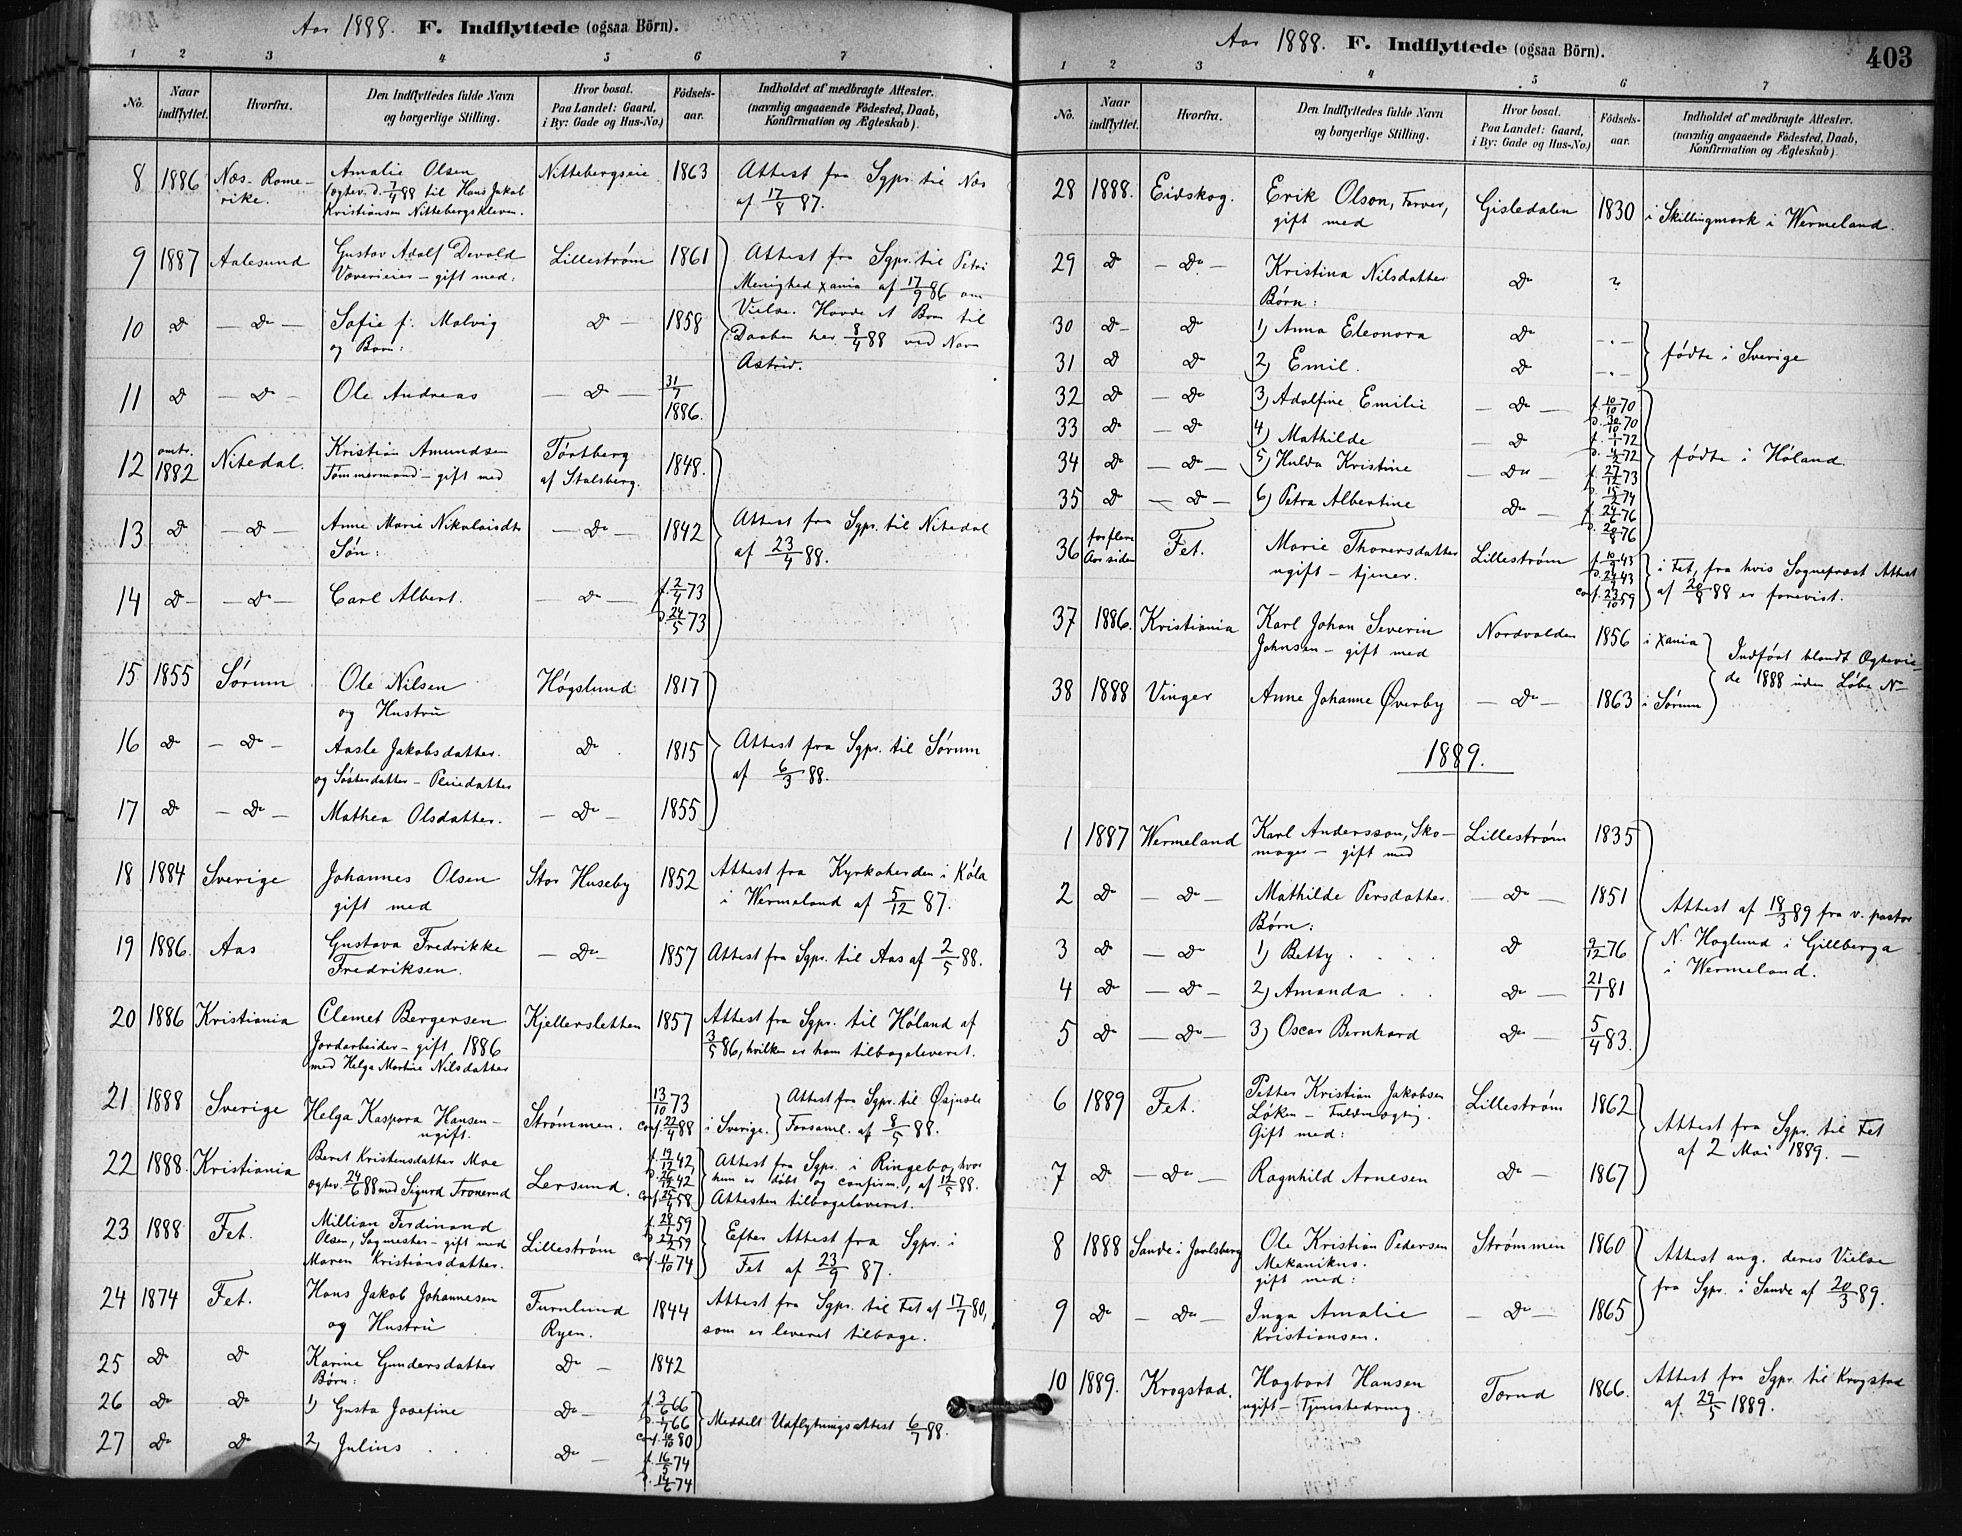 Aar 1888. F. Indflyttede (ogsaa Börn).
1 2 3 4 5 6 7
No. Naar indflyttet. Hvorfra. Den Indflyttedes fulde Navn og borgerlige Stilling. Hvor bosat. Paa Landet: Gaard, i By: Gade og Hus-No.) Födsels-aar. Indholdet af medbragte Attester. (navnlig angaaende Födested, Daab, Konfirmation og Ægteskab).
8 1886 Næs. Rome- Amalie Olsen Nittebergseie 1863 Attest fra Sgpr. til Næs
rike. (ægtev. d. 7/4 88 til Hans Jakob af 17/8 87.
Kristiansen Nittebergskleven.
9 1887 Aalesund Gustav Adolf Devold Lillestrøm 1861 Attest fra Sgpr. til Petri
Væverieier - gift med: Menighed Xania af 17/9 86 om
10 D - Do - Sofie f. Malvig D - 1858 Vielse. Havde et Barn til
og Barn: Daaben her 8/4 88 ved Navn
11 D - D - Ole Andreas - D - 31/7 1886. Astrid.
12 omtr. 1882 Nitedal. Kristian Amundsen Tørtberg 1848.
Tømmermand - gift med af Stalsberg.
13 D - D - Anne Marie Nikolaisdtr - Do - 1842 Attest fra Sgpr. til Nitedal
Søn: af 23/4 88.
14 D - - Do - Carl Albert. - Do - f. 2/4 73
D. 24/5 73
15 1855 Sørum Ole Nilsen Høgslund 1817
og Hustru
16 Do - Do - Aasle Jakobsdatter. Do 1815 Attest fra Sgpr. til Sørum
og Søsterdatter - Pleiedatter af 6/3 88.
17 Do - Do - Mathea Olsdatter. - Do - 1855
18 1884 Sverige Johannes Olsen Stor Huseby 1852 Attest fra Kyrkoherden i Köla
gift med i Wermeland af 5/12 87.
19 1886 Aas Gustava Fredrikke - Do - 1857 Attest fra Sgpr. til Aas af 2/5 88.
Fredriksen.
20 1886 Kristiania Clemet Bergersen Kjellersletten 1857 Attest fra Sgpr. til Høland af
Jordarbeider - gift 1886 3/5 86, hvilken er ham tilbageleveret.
med Helga Martine Nilsdatter
21 1888 Sverige Helga Kaspora Hansen - Strømmen. 13/10 73 Attest fra Sgpr. til
ugift. conf. 22/4 88 i Sverige. Forsaml. af 8/5 88.
22 1888. Kristiania Beret Kristensdatter Moe Lersund. f. 19/12 42 Attest fra Sgpr. i Ringebo, hvor
ægtev. 24/6 88 med Sigurd Tronerud D. 26/12 42 hun er døbt og confirm., af 12/5 88.
conf. 25/4 58 Attesten tilbageleveret.
23 1888 Fet. Millian Ferdinand Lillestrøm f. 28/1 59 Efter Attest fra Sgpr. i
Olsen, Sagmester - gift med D. 27/2 59 Fet af 23/9 87.
Maren Kristiansdatter. conf. 4/10 74
24 1874 Fet. Hans Jakob Johannesen Furulund 1844 Attest fra Sgpr. til Fet af 17/7 80,
og Hustru Ryen. som er leveret tilbage.
25 Do D Karine Gundersdatter Do - 1842
Børn:
26 Do Do 1) Gusta Josefine Do - f. 3/6 66
D. 1/7 66 Meddelt Udflytningsattest 6/7 88.
conf. 10/10 80
27 Do Do 2) Julius . . . Do - f. 16/5 74
D. 14/6 74
Aar 1888. F. Indflyttede (ogsaa Börn). 403
1 2 3 4 5 6 7
No. Naar indflyttet. Hvorfra. Den Indflyttedes fulde Navn og borgerlige Stilling. Hvor bosat. Paa Landet: Gaard, i By: Gade og Hus-No.) Födsels-aar. Indholdet af medbragte Attester. (navnlig angaaende Födested, Daab, Konfirmation og Ægteskab).
28 1888. Eidskog. Erik Olson, Farver, Gisledalen 1830 i Skillingmark i Wermeland.
gift med
29 D - Do - Kristina Nilsdatter Do ?
Børn:
30 D - D 1) Anna Eleonora Do - " -
31 D Do 2) Emil. D - " - fødte i Sverige
32 D - Do 3) Adolfine Emilie - Do - f. 10/10 70
D. 30/10 70
33 Do - Do 4) Mathilde - D f. 1/1 72
D. 4/2 72
34 Do - Do - 5) Hulda Kristine - Do - f. 27/12 73 fødte i Høland.
D. 15/2 74
35 Do - Do - 6) Petra Albertine Do - f. 24/6 76
D. 20/8 76
36 for flere Aar siden Fet. Marie Thorersdatter Lillestrøm f. 10/9 43 i Fet, fra hvis Sogneprest Attest
ugift - tjener. D. 24/9 43 af 20/9 88 er forevist.
conf. 23/10 59
37 1886. Kristiania Karl Johan Severin Nordvolden 1856 i Xania Indført blandt Ægtevie-
Johnsen - gift med de 1888 uden Løbe No
38 1888 Vinger Anne Johanne Øverby - Do - 1863 i Sørum
1889.
1 1887 Wermeland Karl Andersson, Sko- Lillestrøm 1835
mager - gift med
2 D - Do - Mathilde Persdatter. - Do - 1851 Attest af 18/3 89 fra v. pastor
Børn: N. Hoglund i Gillberga
3 D - Do 1) Betty . . . . D 9/12 76 i Wermeland.
4 Do - Do - 2) Amanda . . Do - 21/1 81
5 Do - Do - 3) Oscar Bernhard Do - 5/4 83.
6 1889 Fet. Petter Kristian Jakobsen Lillestrøm 1862
Løken - Fuldmægtig. Attest fra Sgpr. til Fet
Gift med: af 2 Mai 1889. -
7 D - Do - Ragnhild Arnesen Do - 1867
8 1888 Sande i Jarlsberg Ole Kristian Pedersen Strømmen 1860
Mekanikus. Attest ang. deres Vielse
gift med: fra Sgpr. i Sande af 20/3 89.
9 Do - Do - Inga Amalie - Do - 1865
Kristiansen.
10 1889. Krogstad. Hagbart Hansen Tornd 1866. Attest fra Sgpr. til Krogstad
ugift - Tjenestedreng. af 29/5 1889.